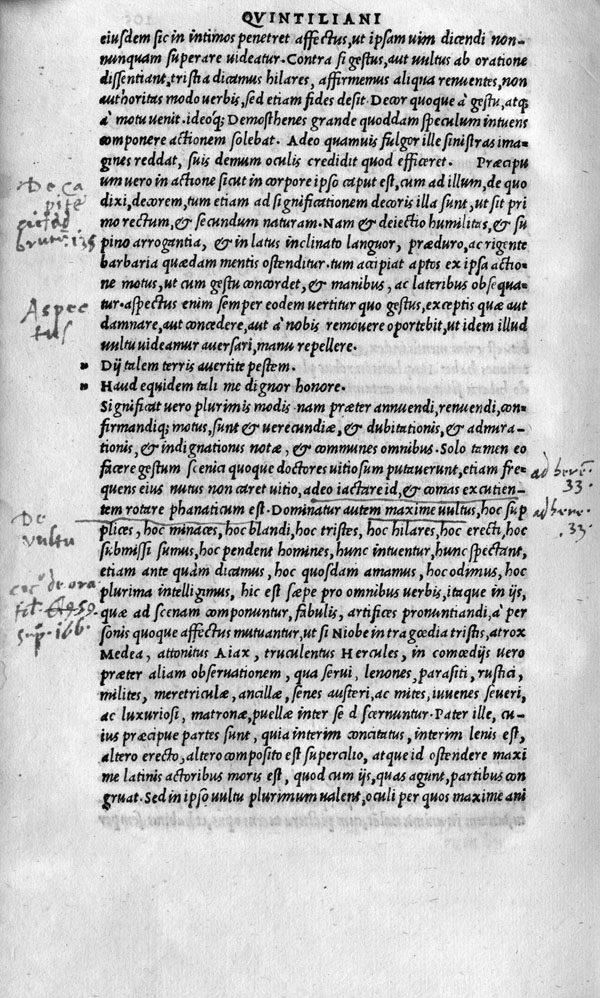 QVINTILIANI
eiusdem sic in intimos penetret affectus, ut ipsam uim dicendi non-
nunquam superare uideatur. Contra si gestus, aut uultus ab oratione
dissentiant, tristia dicamus hilares, affirmemus aliqua renuentes, non
authoritas modo uerbis, sed etiam fides desit. Decor quoque à gestu, atq;
à motu uenit. ideoq; Demosthenes grande quoddam speculum intuens
componere actionem solebat. Adeo quamuis fulgor ille sinistras ima-
gines reddat, suis demum oculis credidit quod efficeret. Præcipu
um uero in actione sicut in corpore ipso caput est, cum ad illum, de quo
De ca
dixi, decorem, tum etiam ad significationem decoris illa sunt, ut sit pri
pite
mo rectum, & secundum naturam. Nam & deiectio humilitas, & su
pino arrogantia, & in latus inclinato languor, præduro, ac rigente
barbaria quædam mentis ostenditur. tum accipiat aptos ex ipsa actio-
ne motus, ut cum gestu concordet, & manibus, ac lateribus obsequa-
Aspec
tur. aspectus enim semper eodem uertitur quo gestus, exceptis quæ aut
tus
damnare, aut concedere, aut à nobis remouere oportebit, ut idem illud
uultu uideamur auersari, manu repellere.
» Dij talem terris auertite pestem.
» Haud equidem tali me dignor honore.
Significat uero plurimis modis. nam præter annuendi, renuendi, con-
firmandiq; motus, sunt & uerecundiæ, & dubitationis, & admira-
tionis, & indignationis notæ, & communes omnibus. Solo tamen eo
facere gestum scenici quoque doctores uitiosum putauerunt, etiam fre-
ad here
quens eius nutus non caret uitio, adeo iactare id, & comas excutien-
33.
tem rotare phanaticum est. Dominatur autem maxime uultus, hoc sup
ad here
De
plices, hoc minaces, hoc blandi, hoc tristes, hoc hilares, hoc erecti, hoc
.33.
vultu
submissi sumus, hoc pendent homines, hunc intuentur, hunc spectant,
etiam ante quàm dicamus, hoc quosdam amamus, hoc odimus, hoc
de ora
plurima intelligimus, hic est sæpe pro omnibus uerbis, itaque in ijs,
59.
quæ ad scenam componuntur, fabulis, artifices pronuntiandi, à per
sup. 166.
sonis quoque affectus mutuantur, ut si Niobe in tragœdia tristis, atrox
Medea, attonitus Aiax, truculentus Hercules, in comœdijs uero
præter aliam obseruationem, qua serui, lenones, parasiti, rustici,
milites, meretriculæ, ancillæ, senes austeri, ac mites, iuuenes seueri,
ac luxuriosi, matronæ, puellæ inter se d scernuntur. Pater ille, cu-
ius præcipue partes sunt, quia interim concitatus, interim lenis est,
altero erecto, altero composito est supercilio, atque id ostendere maxi
me latinis actoribus moris est, quod cum ijs, quas agunt, partibus con
gruat. Sed in ipso uultu plurimum ualent, oculi per quos maxime ani